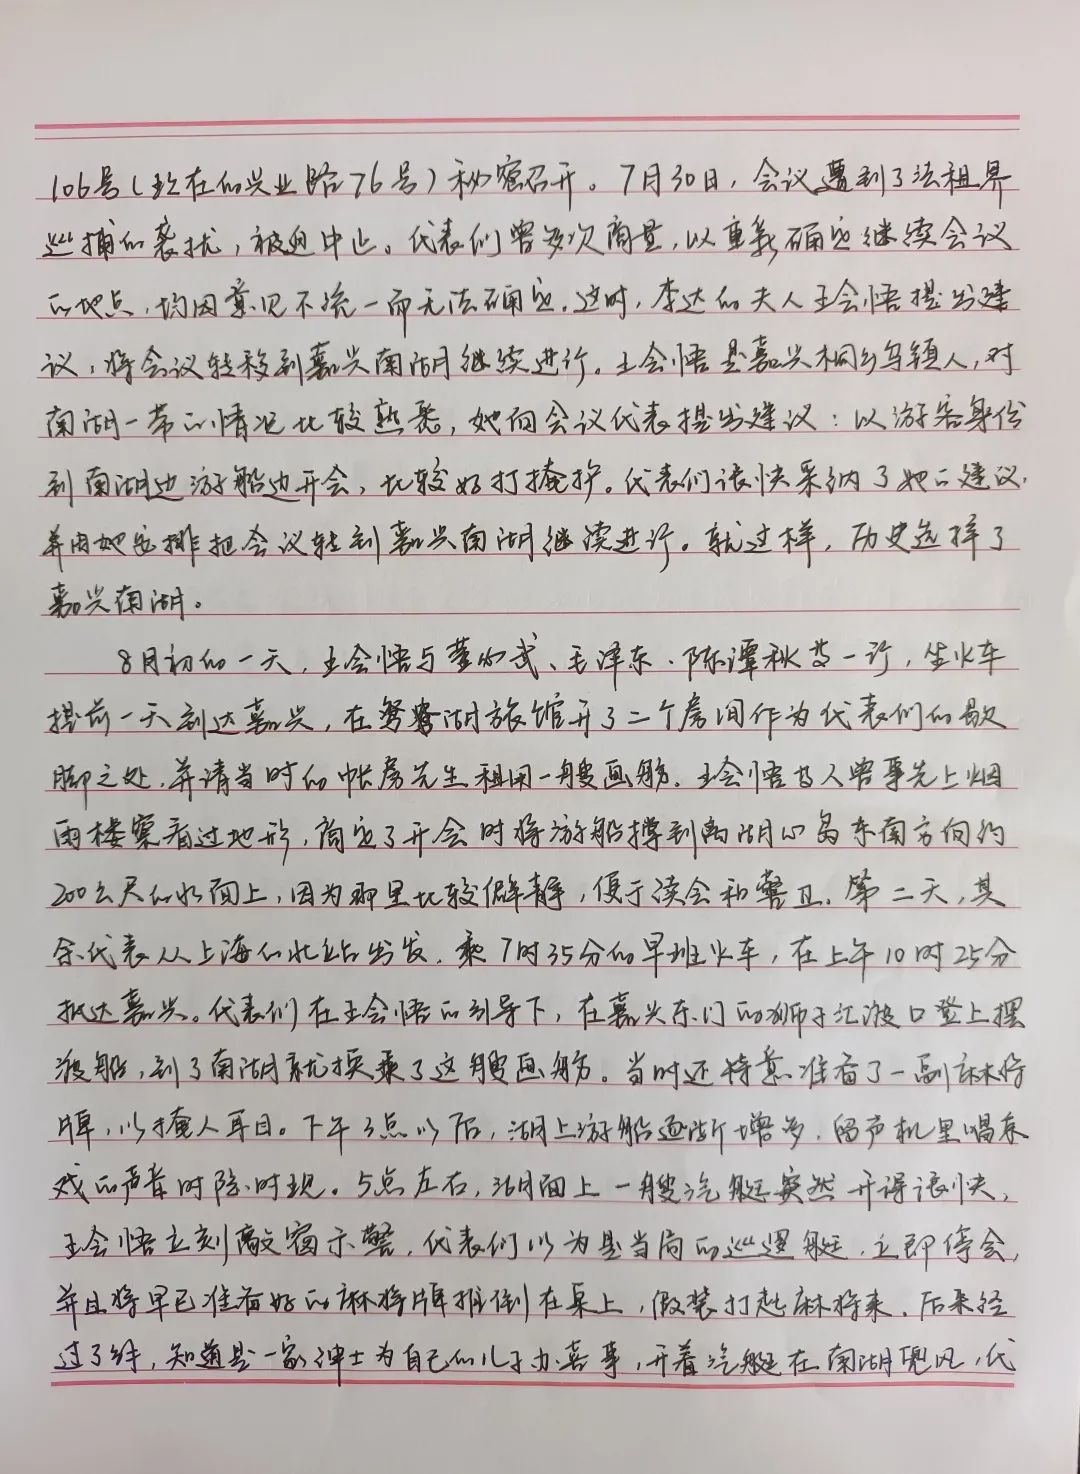 106号(现在的兴业路76号)秘密召开。7月30日,会议遭到了法租界
巡捕的袭扰,被迫中止。代表们曾多次商量,以重新确定继续会议
的地点,均因意见不统一而无法确定。这时,李达的夫人王会悟提出建
议,将会议转移到嘉兴南湖继续进行。王会悟是嘉兴桐乡乌镇人,对
南湖一带的情况比较熟悉,她向会议代表提出建议:以游客身份
到南湖边游船边开会,比较好打掩护。代表们很快采纳了她的建议,
并由她安排把会议转到嘉兴南湖继续进行。就这样,历史选择了
嘉兴南湖。
8月初的一天,王会悟与董必武、毛泽东、陈潭秋等一行,坐火车
提前一天到达嘉兴,在鸳鸯湖旅馆开了二个房间作为代表们的歇
脚之处,并请当时的帐房先生租用一艘画舫。王会悟等人曾事先上烟
雨楼察看过地形,商定了开会时将游船撑到离湖心岛东南方向约
200公尺的水面上,因为那里比较僻静,便于谈会和警卫。第二天,其
余代表从上海的北站出发,乘7时35分的早班火车,在上午10时25分
抵达嘉兴。代表们在王会悟的引导下,在嘉兴东门的狮子汇渡口登上摆
渡船,到了南湖就换乘了这艘画舫。当时还特意准备了一副麻将
牌,以掩人耳目。下午3点以后,湖上游船逐渐增多,留声机里唱京
戏的声音时隐时现。5点左右,湖面上一艘汽艇突然开得很快,
王会悟立刻敲窗示警,代表们以为是当局的巡逻艇,立即停会,
并且将早已准备好的麻将牌推倒在桌上,假装打起麻将来。后来经
过了解,知道是一家绅士为自己的儿子办喜事,开着汽艇在南湖兜风,代